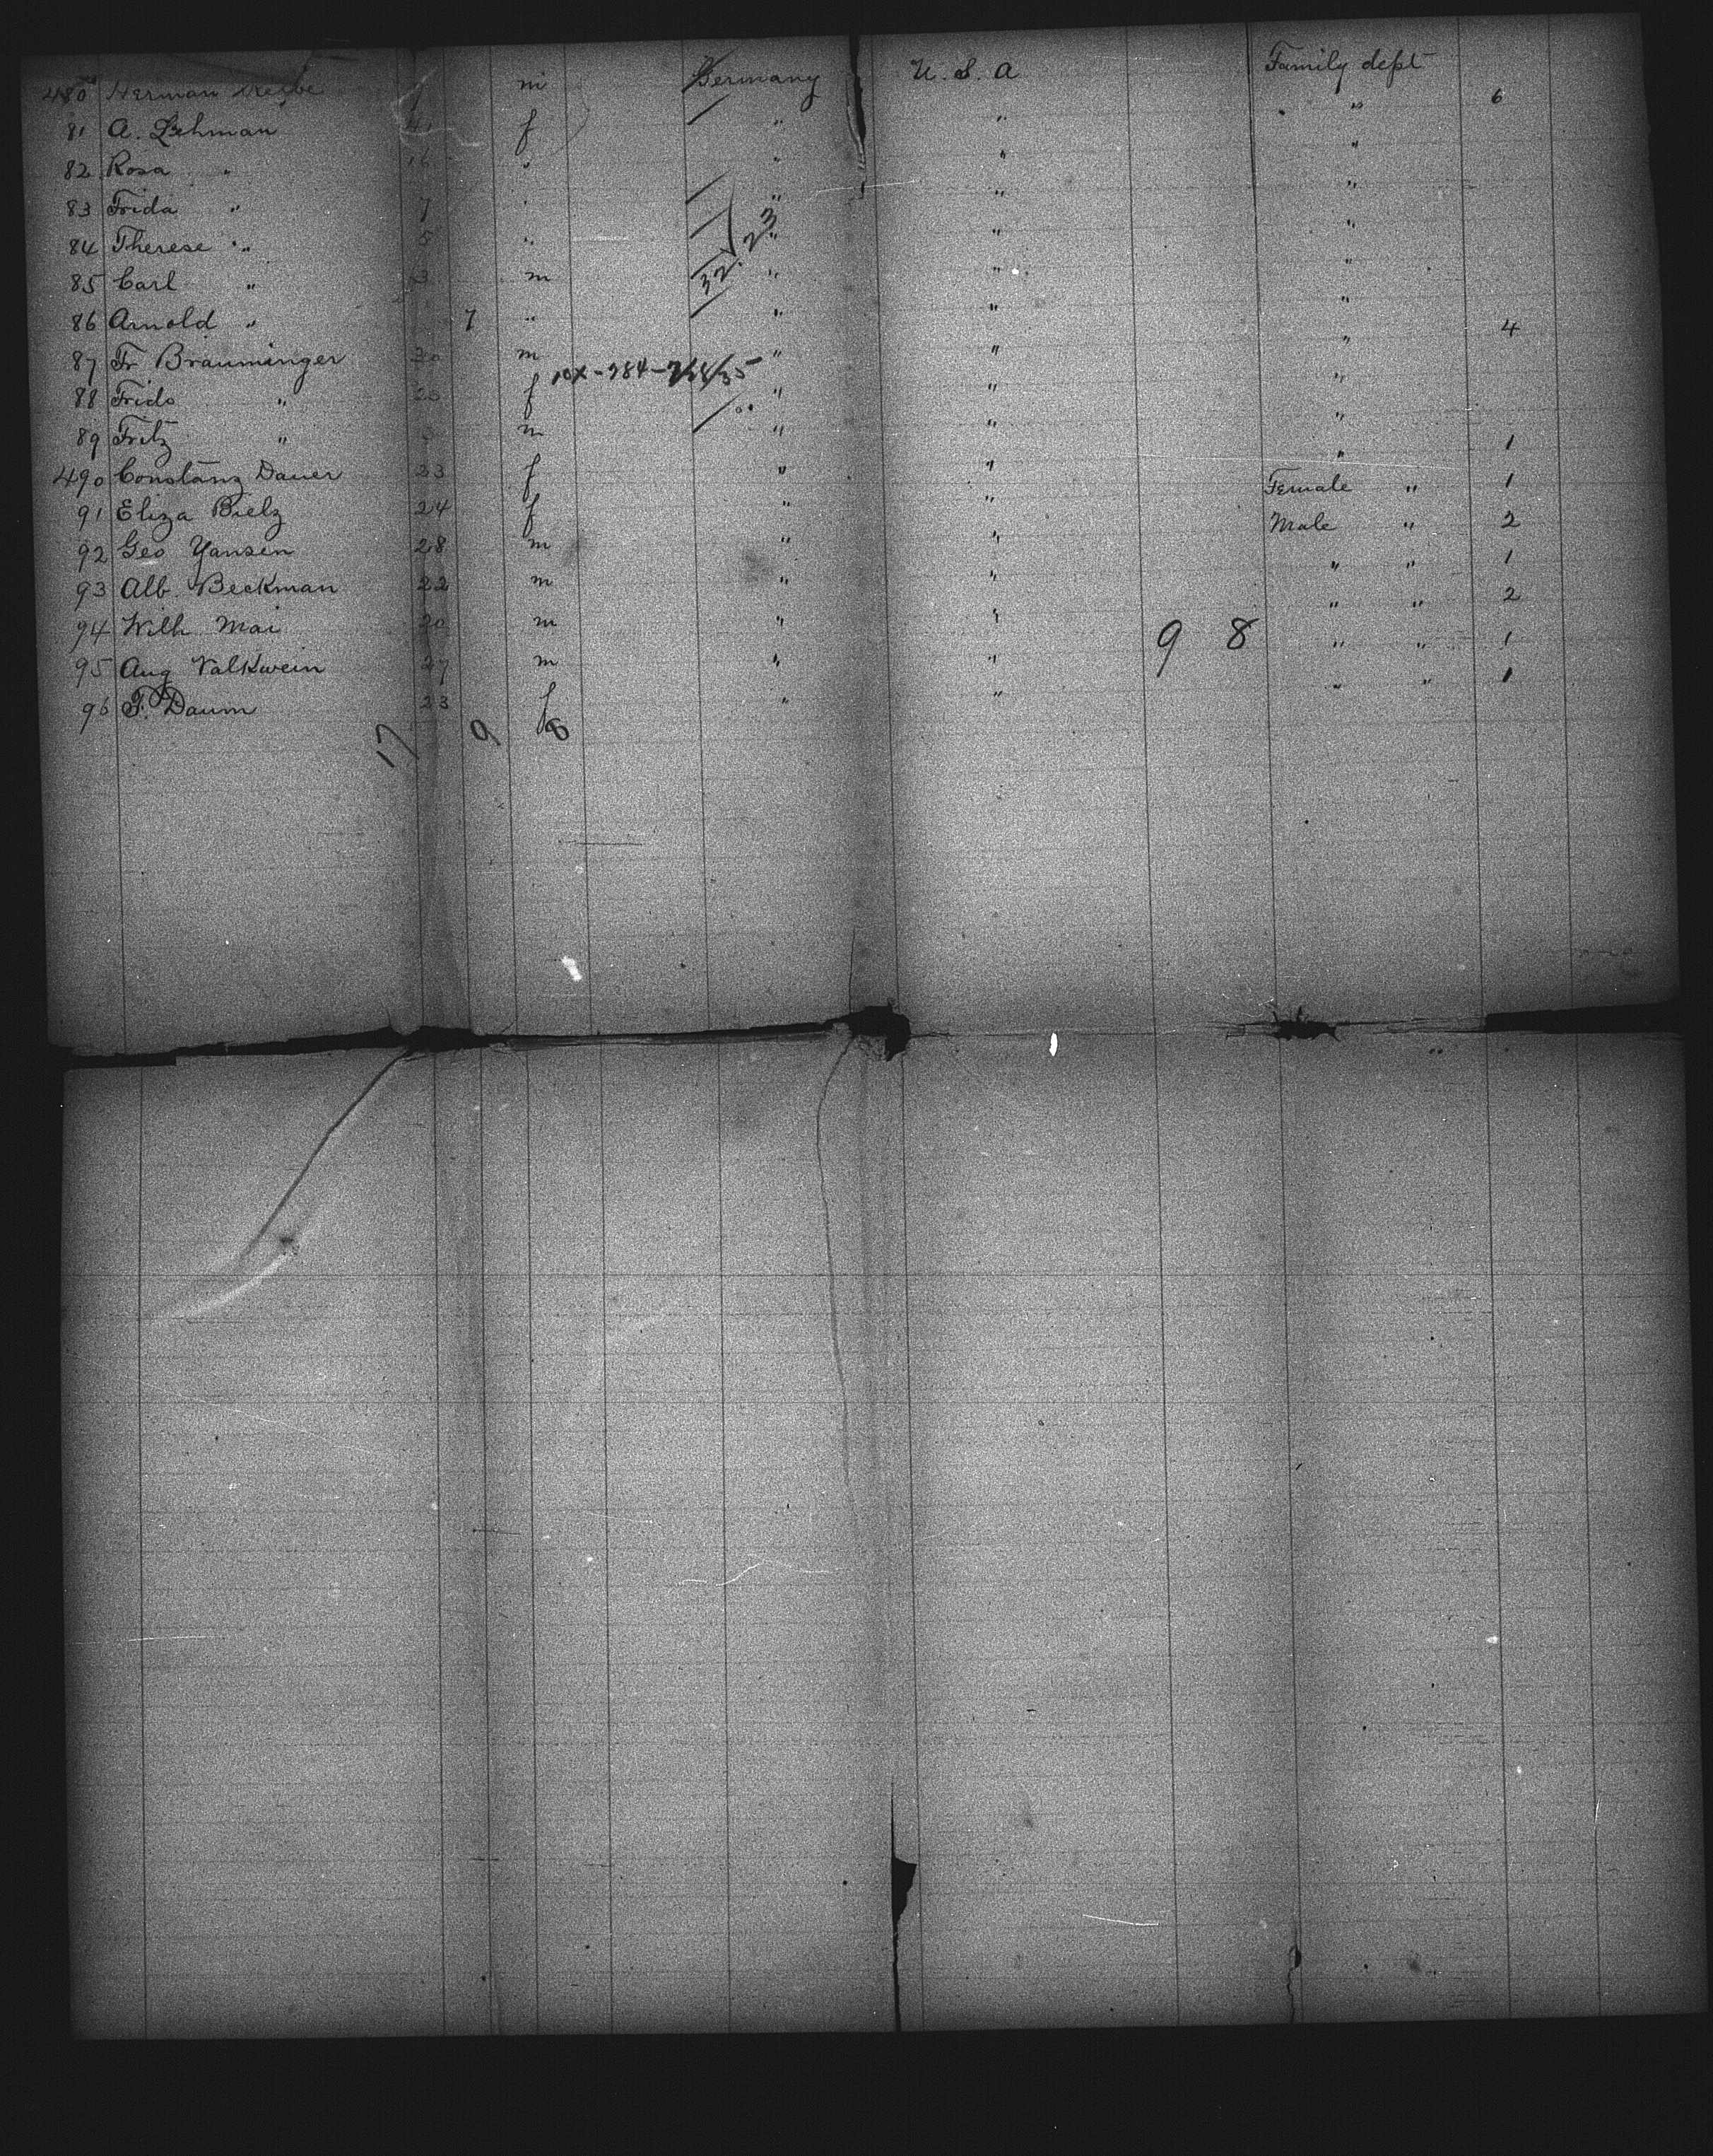 480 Herman m Germany U. S. A Family dept
81 A. Lehman f " " " 6
82 Rosa " 16 " " " "
83 Frida " 7 " " " "
84 Therese " 5 " " " "
85 Carl " 3 m " " "
86 Arnold " 7 " " " "
87 Fr Brauminger 20 m " " " 4
88 Frido " f " " "
89 Fritz " m " " "
490 Constanz Dauer 23 f " " " 1
91 Eliza Bielz 24 f " " Female " 1
92 Geo Yansen 28 m " " Male " 2
93 Alb. Beckman 22 m " " " " 1
94 Wilh Mai 20 m " " " " 2
95 Aug Valkwein 27 m " " 9 8 " " 1
96 F. Daum 23 f " " " " 1
17 9 8